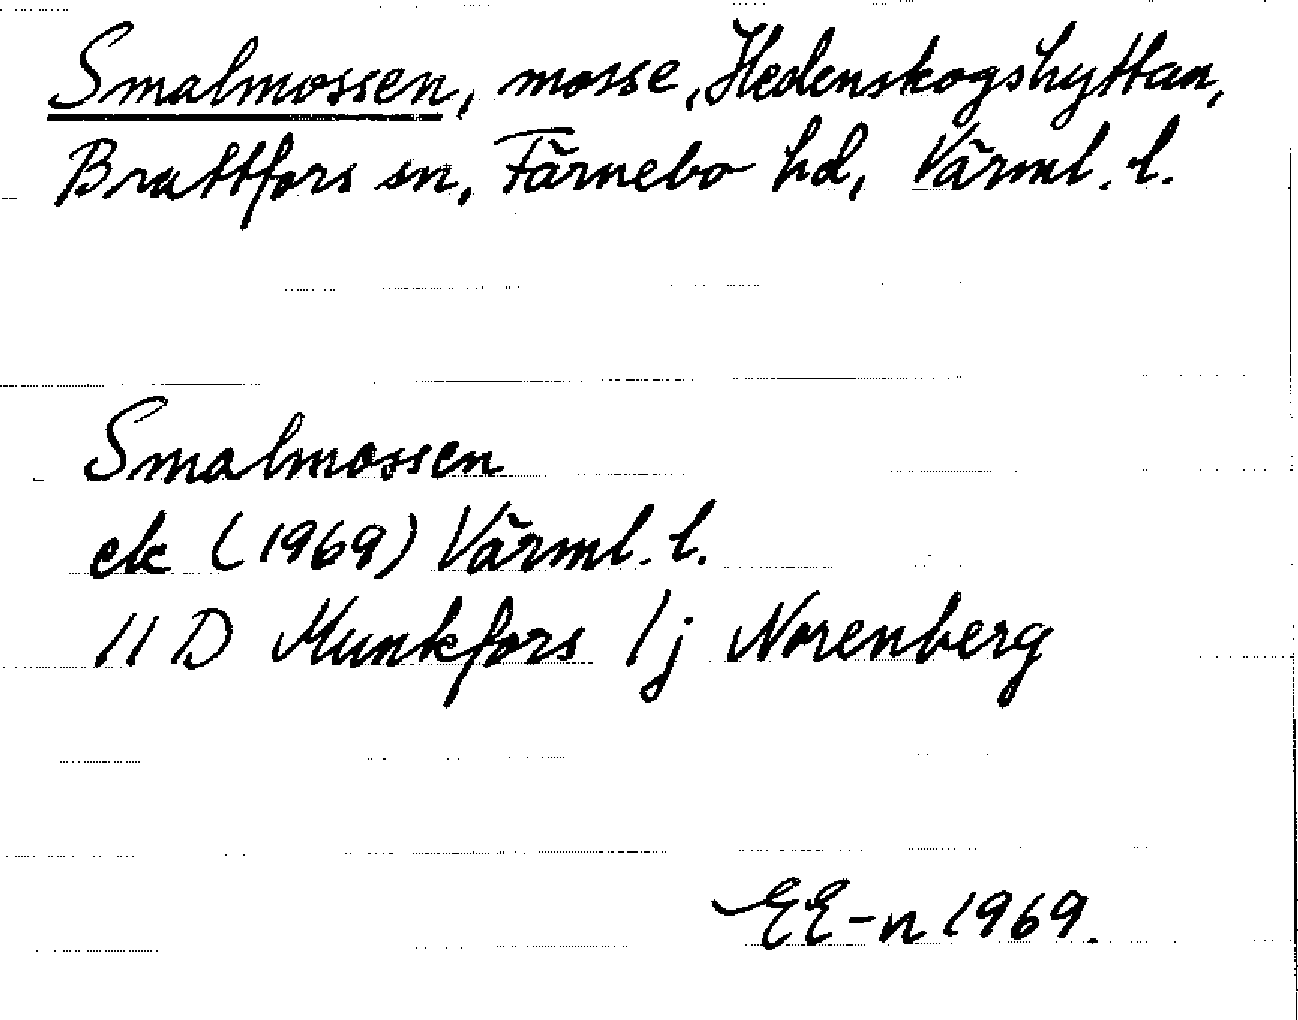 Smalmossen, mosse, Hedenskogshyttan,
Brattfors sn, Färnebo hd, Värml. l.
Smalmossen
ek (1969) Värml. l.
11 D Munkfors 1j Norenberg
EE-n 1969.